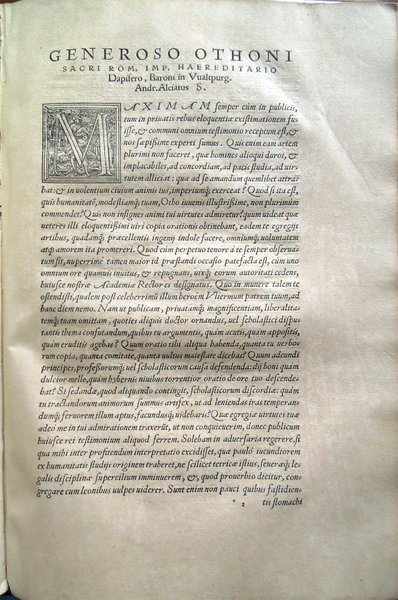 GENEROSO OTHONI
SACRI ROM. IMP. HAEREDITARIO
Dapifero, Baroni in Vualtpurg.
Andr. Alciatus S.
MAXIMAM semper cùm in publicis,
tum in priuatis rebus eloquentiæ existimationem fu
isse, & communi omnium testimonio receptum est, &
nos sæpißime experti sumus. Quis enim eam artem
plurimi non faceret, quæ homines alioqui duros, &
implacabiles, ad concordiam, ad pacis studia, ad uir-
tutem alliciat: quæ ad se amandum quemlibet attra-
hat: & in uolentium ciuium animis ius, imperiumq́; exerceat? Quod si ita est,
quis humanitatē, modestiamq́; tuam, Otho iuuenis illustrißime, non plurimum
commendet? Quis non insignes animi tui uirtutes admiretur? quum uideat quæ
ueteres illi eloquentißimi uiri copia orationis obtinebant, eadem te egregijs
artibus, quadamq́; præcellentis ingenij indole facere, omniumq́; uoluntatem
atq́; amorem ita promereri. Quod cùm perpetuo tenore à te semper obserua
tum sit, nuperrimè tamen maior id præstandi occasio patefacta est, cum uno
omnium ore quamuis inuitus, & repugnans, utriq́; eorum autoritati cedens,
huiusce nostræ Academiæ Rector es designatus. Quo in munere talem te
ostendisti, qualem post celeberrimū illum heroem Vliermum patrem tuum, ad
hanc diem nemo. Nam ut publicam, priuatamq́; magnificentiam, liberalita-
temq́; tuam omittam, quoties aliquis doctor ornandus, uel scholastici dispu-
tantis thema confutandum, quibus tu argumentis, quàm acutis, quàm appositis,
quàm eruditis agebas? Quum oratio tibi aliqua habenda, quanta tu uerbo-
rum copia, quanta comitate, quanta uultus maiestate dicebas? Quum adeundi
principes, professorumq́; uel scholasticorum causa defendenda: dij boni quàm
dulcior melle, quàm hybernis niuibus torrentior oratio de ore tuo descende-
bat? Si sedandæ, quod aliquando contingit, scholasticorum discordiæ: quàm
tu tractandorum animorum summus artifex, ut ad leniendas iras temperan-
dumq́; feruorem illum aptus, facundusq́; uidebaris? Quæ egregiæ uirtutes tuæ
adeo me in tui admirationem traxerūt, ut non conquieuerim, donec publicum
huiusce rei testimonium aliquod ferrem. Solebam in aduersaria regerere, si
qua mihi inter profitendum interpretatio excidisset, quæ paulò iucundiorem
ex humanitatis studijs originem traheret, ne scilicet tetricæ istius, seueræq́; le-
galis disciplinæ supercilium imminuerem, &, quod prouerbio dicitur, con-
gregare cum leonibus uulpes uiderer. Sunt enim non pauci quibus fastidien-
* 2 tis stomachi